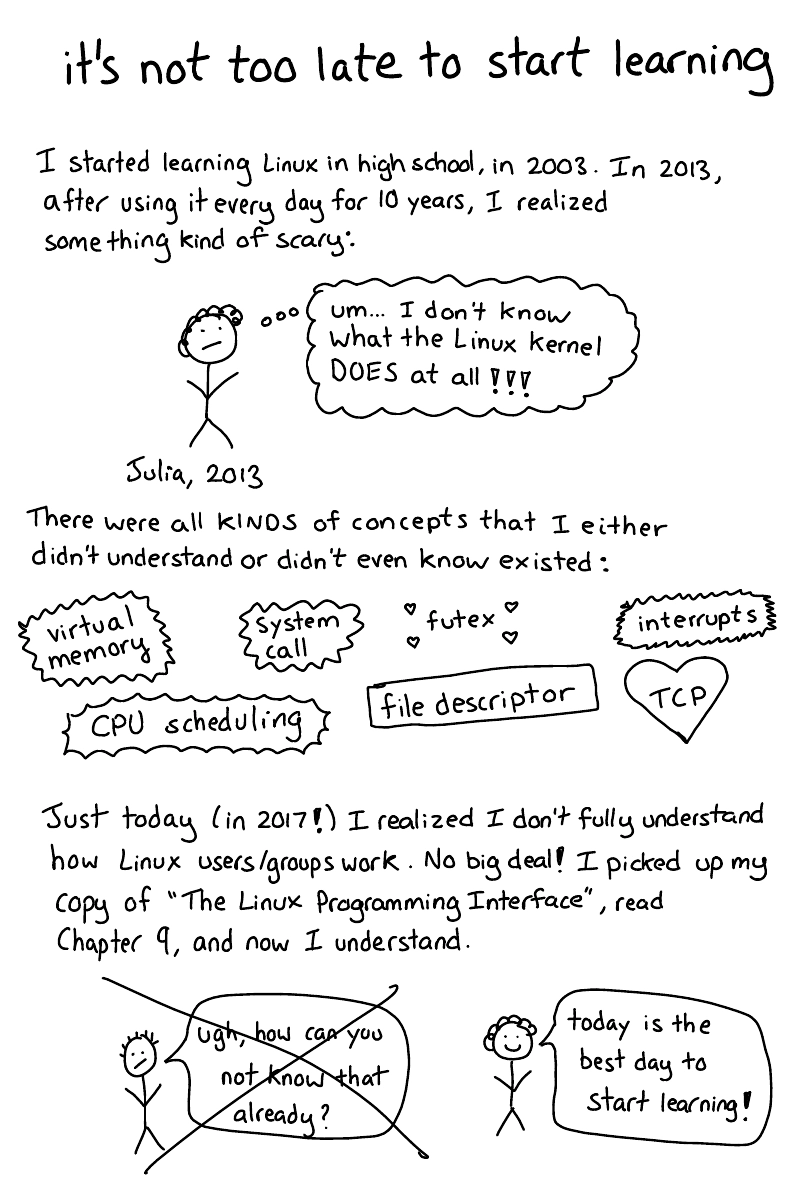 it's not too late to start learning
I started learning Linux in high school, in 2003. In 2013,
after using it every day for 10 years, I realized
something kind of scary:
um... I don't know
what the Linux kernel
DOES at all !!!
Julia, 2013
There were all KINDS of concepts that I either
didn't understand or didn't even know existed:
virtual
memory
system
call
♡ futex ♡
♡ ♡
interrupts
CPU scheduling
file descriptor
TCP
Just today (in 2017!) I realized I don't fully understand
how Linux users/groups work. No big deal! I picked up my
copy of "The Linux Programming Interface", read
Chapter 9, and now I understand.
ugh, how can you
not know that
already?
today is the
best day to
start learning!